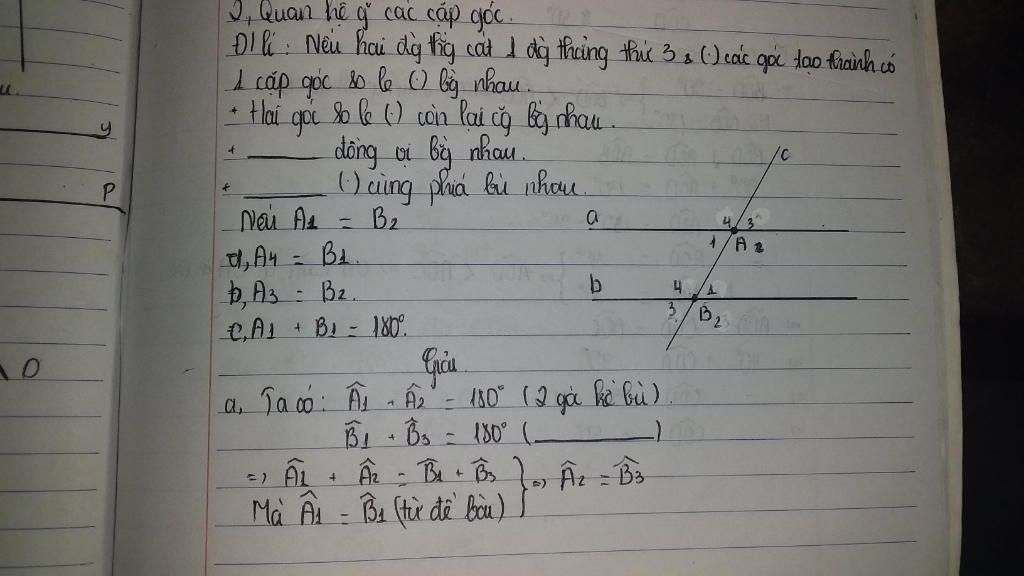 2, Quan hệ g̃ các cặp góc.
Đlí: Nếu hai đg thg cắt 1 đg thẳng thứ 3 & (.) các góc tạo thành có
1 cặp góc so le (.) bg nhau.
+ Hai góc so le (.) còn lại cg̃ bg nhau.
+ ______ đồng vị bg nhau.
+ ______ (.) cùng phía bù nhau.
Nếu A1 = B2
a, A4 = B1.
b, A3 = B2.
c, A1 + B1 = 180°.
Giải
a, Ta có: Â1 + Â2 = 180° (2 góc kề bù).
B̂1 + B̂3 = 180° (______)
=> Â1 + Â2 = B̂1 + B̂3
Mà Â1 = B̂1 (từ đề bài)
=> Â2 = B̂3
c
a
4 3
1 A 2
b
4 1
3 B2
u.
y
P
O